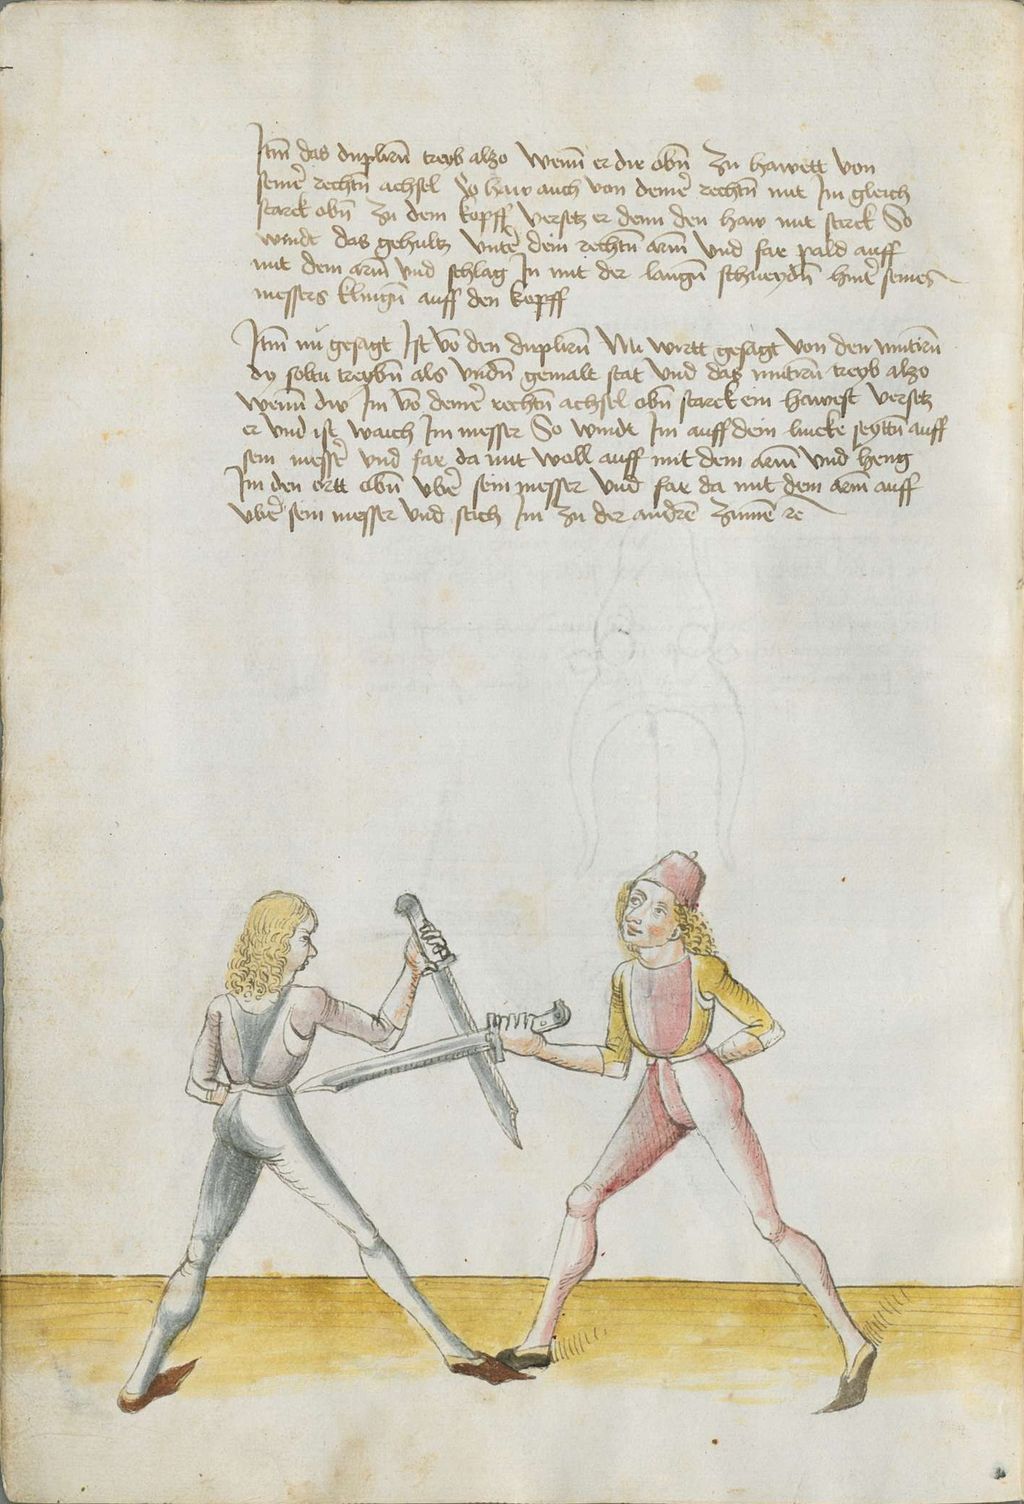 Itm̄ das duplirn̄ treyb also Wenn er dir obn̄ zu hawett von
seinē rechtn̄ achsel So haw auch von deinē rechtn̄ mit Im gleich
starck obn̄ zu dem kopff versetz er denn den haw mit sterck So
windt das gehultz untē dein rechtn̄ arm̄ und far pald auff
mit dem arm̄ und schlag In mit der langn̄ schneydn̄ hintē seines
messers klingn̄ auff den kopff
Itm̄ nu gesagt Ist vō den duplirn̄ Nu wirtt gesagt von den mutirn̄
dy soltu treybn̄ als undn̄ gemalt stat und das mutirn̄ treyb also
wenn dw Im vō deinē rechtn̄ achsel obn̄ starck ein hawest versetz
er und ist waich Im messer So windt Im auff dein lincke seyttn̄ auff
sein messē und far da mit woll auff mit dem arm̄ und heng
Im den ortt obn̄ ubē sein messer und far da mit dem arm̄ auff
ubē sein messer und stich Im zu der andrē